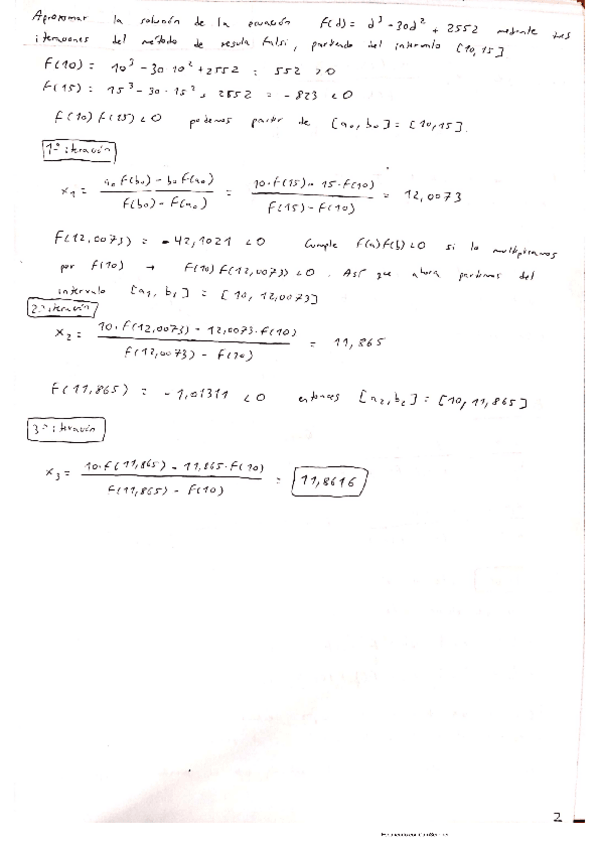 Aproximar la solución de la ecuación f(d) = d³ - 30d² + 2552 mediante tres
iteraciones del método de regula falsi, partiendo del intervalo [10,15]
f(10) = 10³ - 30·10² + 2552 = 552 > 0
f(15) = 15³ - 30·15² + 2552 = -823 < 0
f(10) f(15) < 0 podemos partir de [a₀, b₀] = [10,15].
1ª iteración
x₁ = (a₀ f(b₀) - b₀ f(a₀)) / (f(b₀) - f(a₀)) = (10·f(15) - 15·f(10)) / (f(15) - f(10)) = 12,0073
f(12,0073) = -42,1021 < 0 Cumple f(a)f(b) < 0 si lo multiplicamos
por f(10) → f(10) f(12,0073) < 0. Así que ahora partimos del
intervalo [a₁, b₁] = [10, 12,0073]
2ª iteración
x₂ = (10·f(12,0073) - 12,0073·f(10)) / (f(12,0073) - f(10)) = 11,865
f(11,865) = -1,01311 < 0 entonces [a₂, b₂] = [10, 11,865]
3ª iteración
x₃ = (10·f(11,865) - 11,865·f(10)) / (f(11,865) - f(10)) = 11,8616
2